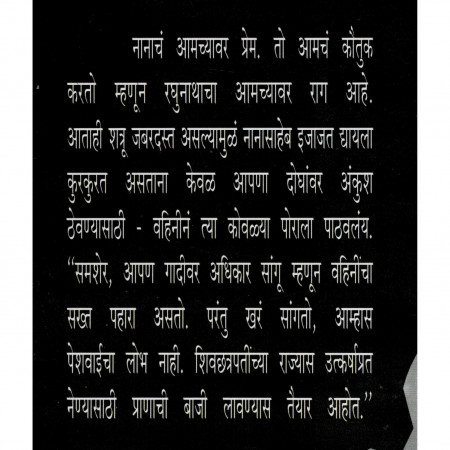 नानाचं आमच्यावर प्रेम. तो आमचं कौतुक
करतो म्हणून रघुनाथाचा आमच्यावर राग आहे.
आताही शत्रू जबरदस्त असल्यामुळं नानासाहेब इजाजत द्यायला
कुरकुरत असताना केवळ आपणा दोघांवर अंकुश
ठेवण्यासाठी - वहिनीनं त्या कोवळ्या पोराला पाठवलंय.
“समशेर, आपण गादीवर अधिकार सांगू म्हणून वहिनींचा
सख्त पहारा असतो. परंतु खरं सांगतो, आम्हास
पेशवाईचा लोभ नाही. शिवछत्रपतींच्या राज्यास उत्कर्षाप्रत
नेण्यासाठी प्राणाची बाजी लावण्यास तैयार आहोत.”